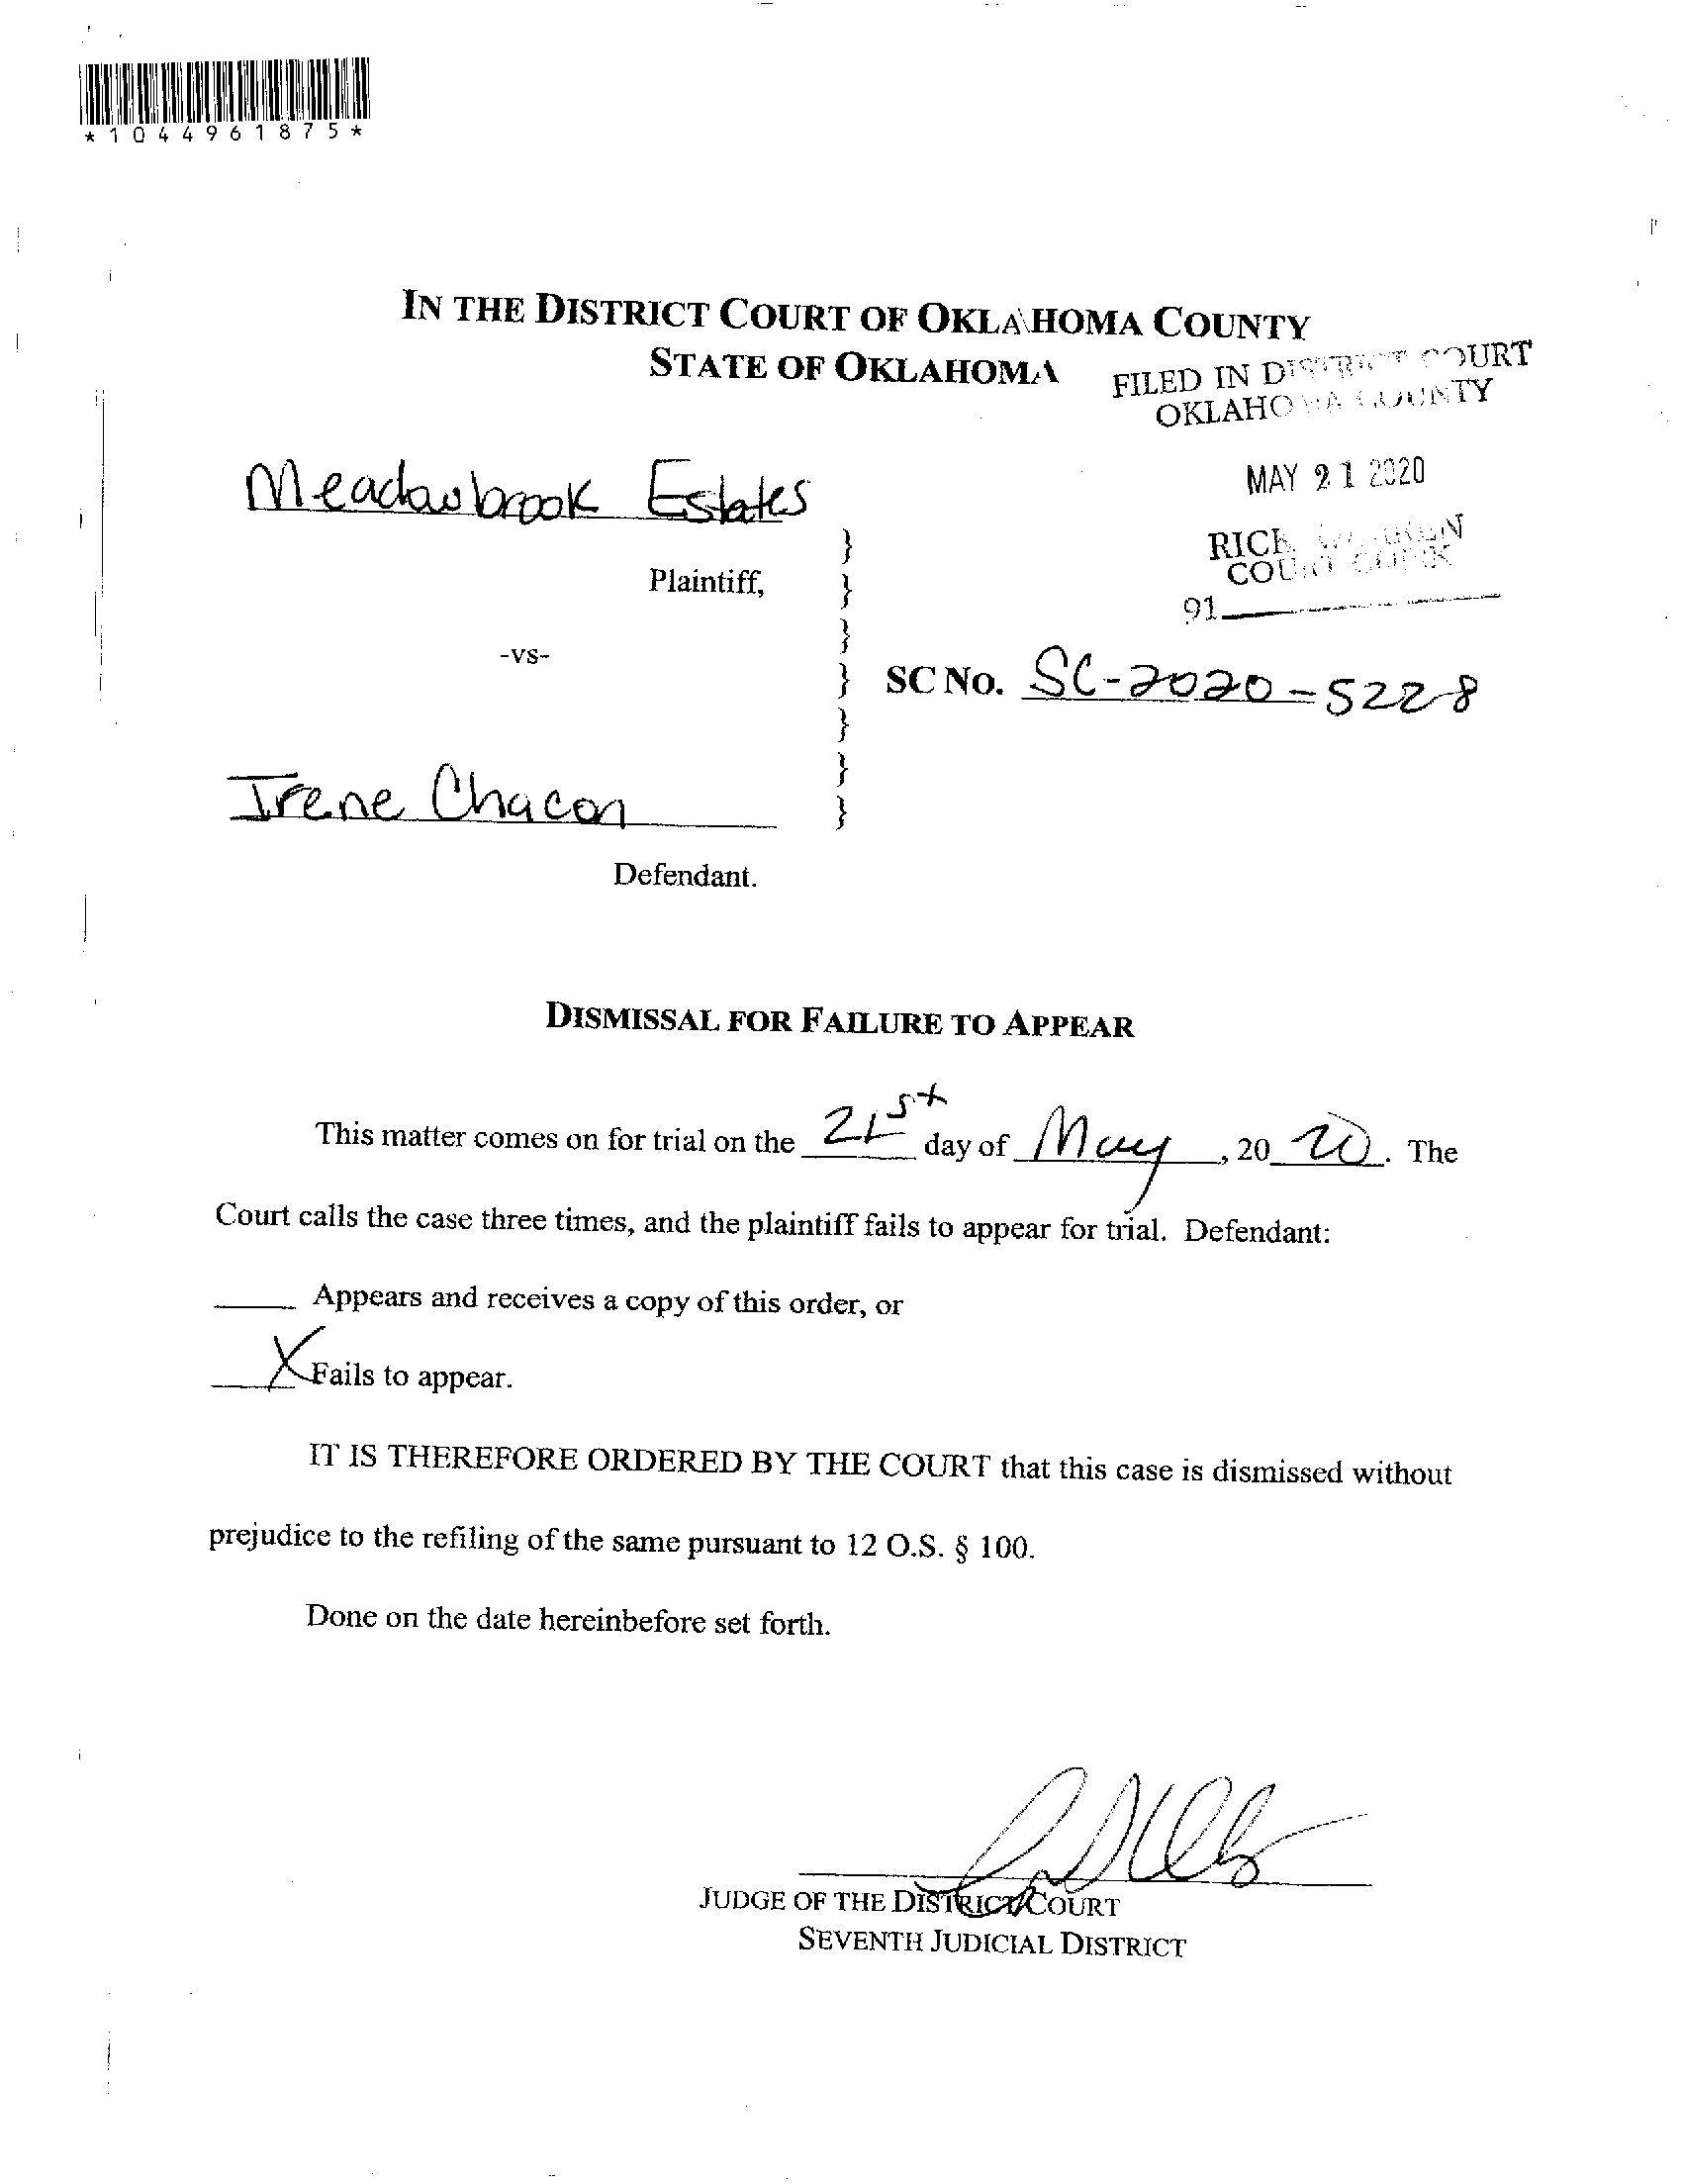 *1044961875*
IN THE DISTRICT COURT OF OKLAHOMA COUNTY
STATE OF OKLAHOMA
FILED IN DISTRICT COURT
OKLAHOMA COUNTY
MAY 21 2020
RICK WARREN
COURT CLERK
91
Meadowbrook Estates
Plaintiff,
-vs-
SC NO. SC-2020-5228
Irene Chacon
Defendant.
DISMISSAL FOR FAILURE TO APPEAR
This matter comes on for trial on the 21st day of May, 20 20. The
Court calls the case three times, and the plaintiff fails to appear for trial. Defendant:
____ Appears and receives a copy of this order, or
X Fails to appear.
IT IS THEREFORE ORDERED BY THE COURT that this case is dismissed without
prejudice to the refiling of the same pursuant to 12 O.S. § 100.
Done on the date hereinbefore set forth.
JUDGE OF THE DISTRICT COURT
SEVENTH JUDICIAL DISTRICT